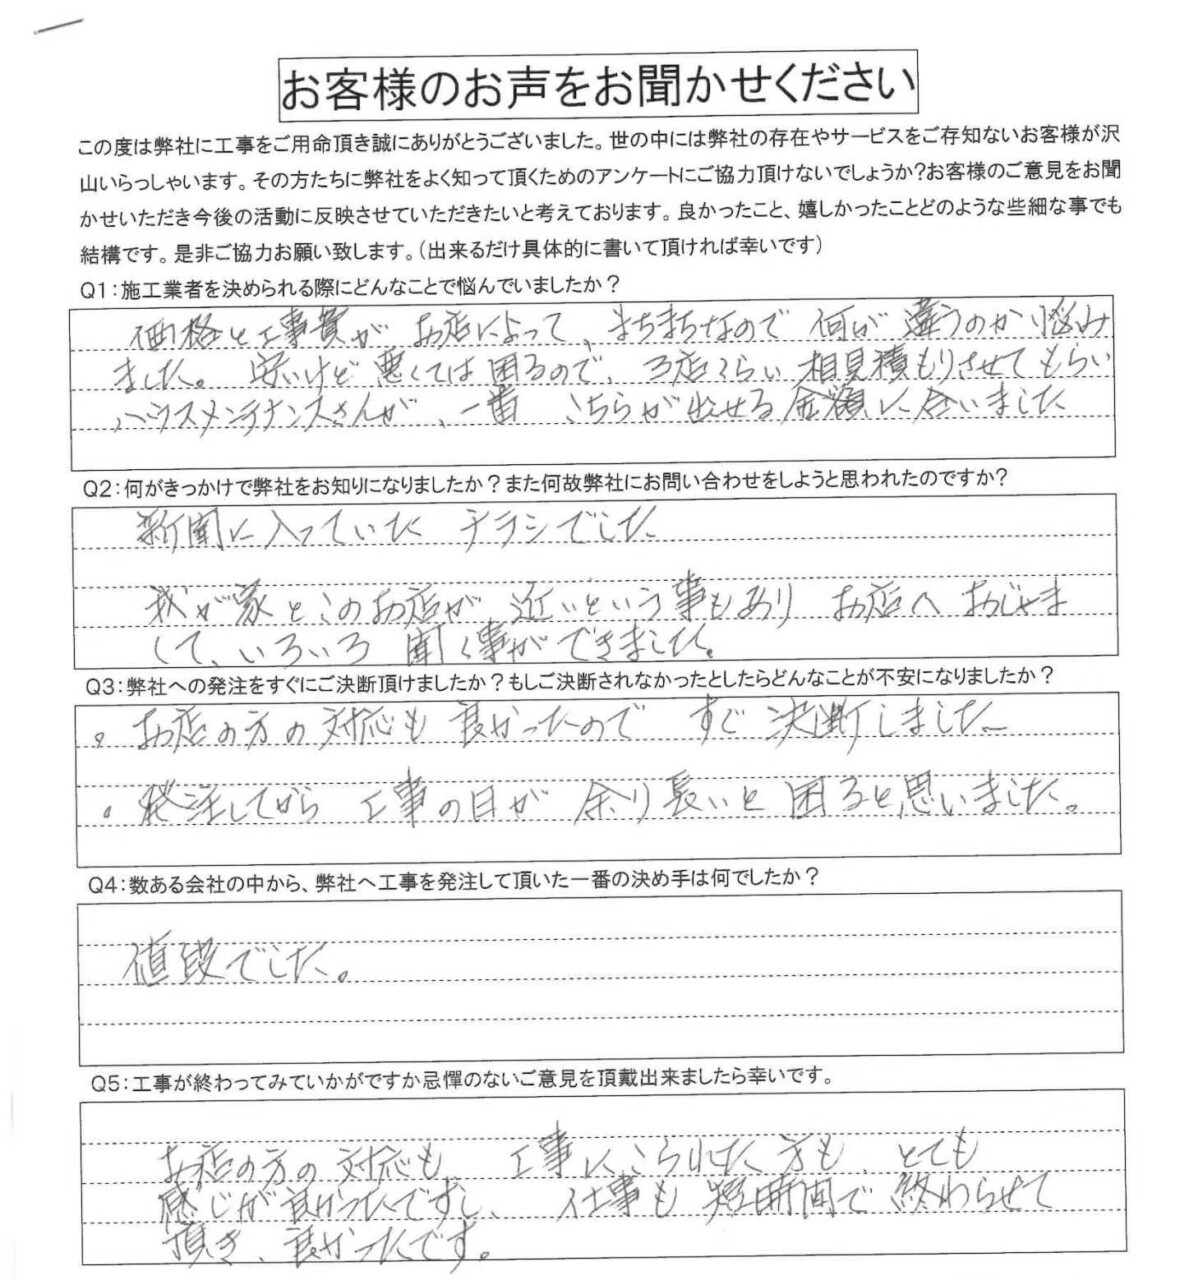 お客様のお声をお聞かせください
この度は弊社に工事をご用命頂き誠にありがとうございました。世の中には弊社の存在やサービスをご存知ないお客様が沢
山いらっしゃいます。その方たちに弊社をよく知って頂くためのアンケートにご協力頂けないでしょうか?お客様のご意見をお聞
かせいただき今後の活動に反映させていただきたいと考えております。良かったこと、嬉しかったことどのような些細な事でも
結構です。是非ご協力お願い致します。(出来るだけ具体的に書いて頂ければ幸いです)
Q1:施工業者を決められる際にどんなことで悩んでいましたか?
価格と工事費が お店によって、まちまちなので 何が違うのか悩み
ました。 安いけど悪くては困るので、3店くらい相見積もりさせてもらい
ハウスメンテナンスさんが、一番 こちらが出せる金額に合いました
Q2:何がきっかけで弊社をお知りになりましたか?また何故弊社にお問い合わせをしようと思われたのですか?
新聞に入っていた チラシでした
我が家とこのお店が 近いという事もあり お店へ おじゃま
して、いろいろ 聞く事ができました。
Q3:弊社への発注をすぐにご決断頂けましたか?もしご決断されなかったとしたらどんなことが不安になりましたか?
。お店の方の対応も 良かったので すぐ決断しました
。発注してから 工事の日が 余り長いと困ると思いました。
Q4:数ある会社の中から、弊社へ工事を発注して頂いた一番の決め手は何でしたか?
値段でした。
Q5:工事が終わってみていかがですか忌憚のないご意見を頂戴出来ましたら幸いです。
お店の方の対応も、工事にこられた方も、とても
感じが良かったですし、仕事も短時間で終わらせて
頂き、良かったです。